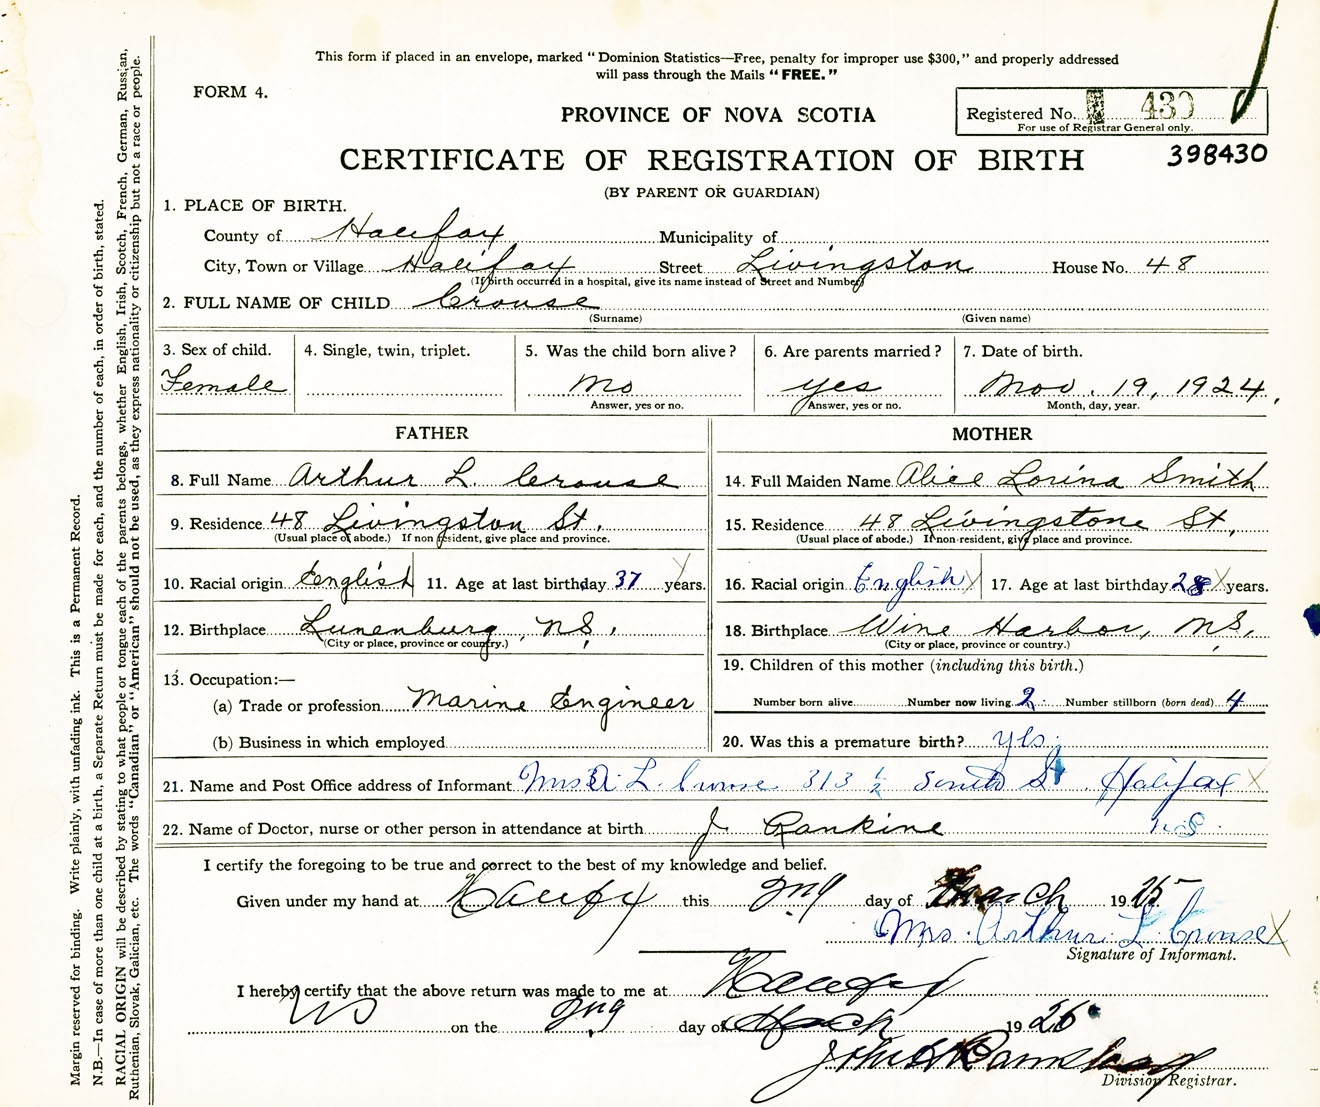 This form if placed in an envelope, marked "Dominion Statistics—Free, penalty for improper use $300," and properly addressed
will pass through the Mails "FREE."
FORM 4.
PROVINCE OF NOVA SCOTIA
Registered No. 430
For use of Registrar General only.
CERTIFICATE OF REGISTRATION OF BIRTH
398430
(BY PARENT OR GUARDIAN)
1. PLACE OF BIRTH.
County of Halifax Municipality of
City, Town or Village Halifax Street Livingston House No. 48
(If birth occurred in a hospital, give its name instead of Street and Number)
2. FULL NAME OF CHILD Crouse
(Surname) (Given name)
3. Sex of child. 4. Single, twin, triplet. 5. Was the child born alive? 6. Are parents married? 7. Date of birth.
Female No yes Nov. 19, 1924,
Answer, yes or no. Answer, yes or no. Month, day, year.
FATHER MOTHER
8. Full Name Arthur L Crouse 14. Full Maiden Name Alice Lorina Smith
9. Residence 48 Livingston St. 15. Residence 48 Livingstone St,
(Usual place of abode.) If non resident, give place and province. (Usual place of abode.) If non-resident, give place and province.
10. Racial origin English 11. Age at last birthday 37 years. 16. Racial origin English X 17. Age at last birthday 28 X years.
12. Birthplace Lunenburg, N.S. 18. Birthplace Wine Harbor, N.S.
(City or place, province or country.) (City or place, province or country.)
13. Occupation:— 19. Children of this mother (including this birth.)
(a) Trade or profession Marine Engineer Number born alive Number now living 2 Number stillborn (born dead) 4
(b) Business in which employed 20. Was this a premature birth? yes.
21. Name and Post Office address of Informant Mrs A. L. Crouse 313 1/2 South St Halifax X
22. Name of Doctor, nurse or other person in attendance at birth J Rankine N.S.
I certify the foregoing to be true and correct to the best of my knowledge and belief.
Given under my hand at Halifax this 2nd day of March 1925
Mrs. Arthur L Crouse X
Signature of Informant.
I hereby certify that the above return was made to me at Halifax
NS on the 2nd day of March 19
Division Registrar.
Margin reserved for binding. Write plainly, with unfading ink. This is a Permanent Record.
N.B.—In case of more than one child at a birth, a Separate Return must be made for each, and the number of each, in order of birth, stated.
RACIAL ORIGIN will be described by stating to what people or tongue each of the parents belongs, whether English, Irish, Scotch, French, German, Russian,
Ruthenian, Slovak, Galician, etc. The words "Canadian" or "American" should not be used, as they express nationality or citizenship but not a race or people.